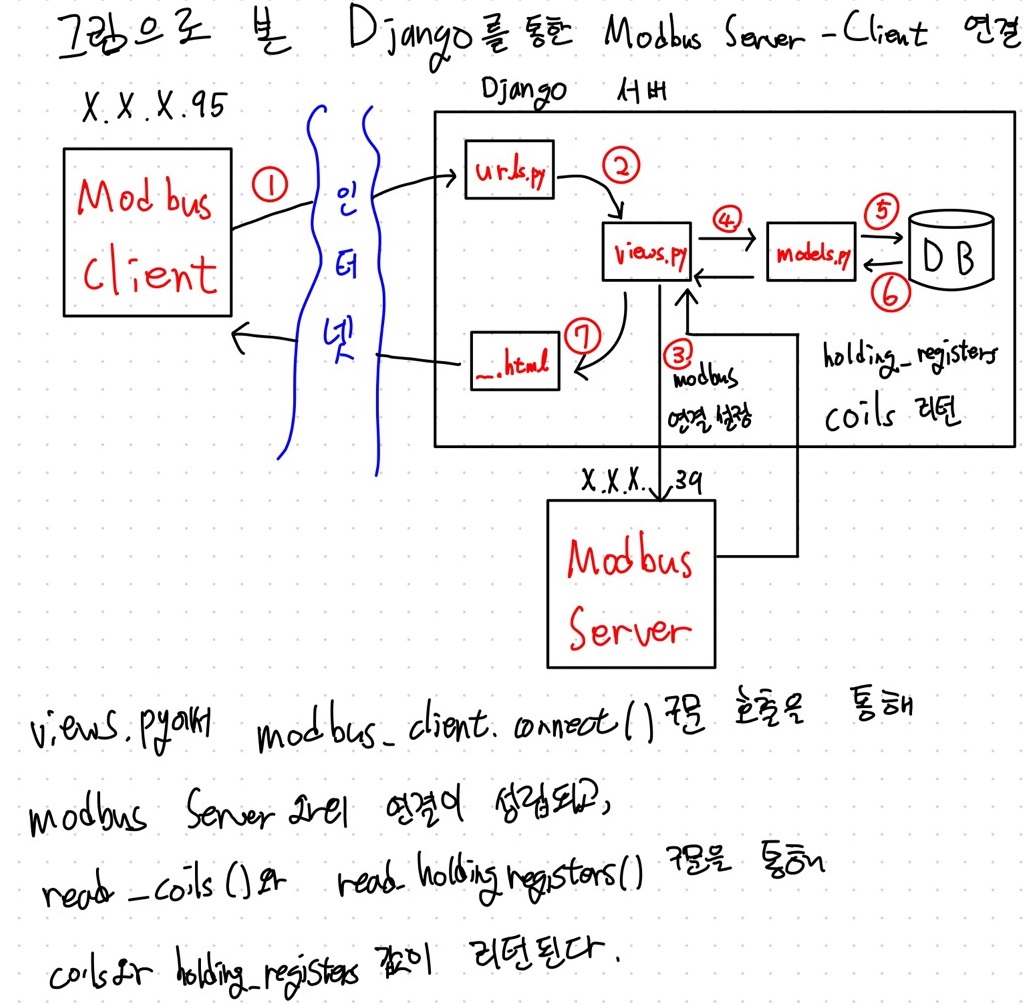 그림으로 본 Django를 통한 Modbus Server - Client 연결
Django 서버
X.X.X.95
Modbus
Client
①
인
터
넷
urls.py
②
views.py
④
models.py
⑤
DB
⑥
_.html
⑦
③
modbus
연결 설정
holding_registers
coils 리턴
X.X.X.39
Modbus
Server
views.py에서 modbus_client.connect() 구문 호출을 통해
modbus Server와의 연결이 성립되고,
read_coils()와 read_holdingregistors() 구문을 통해
coils와 holding_registers 값이 리턴된다.